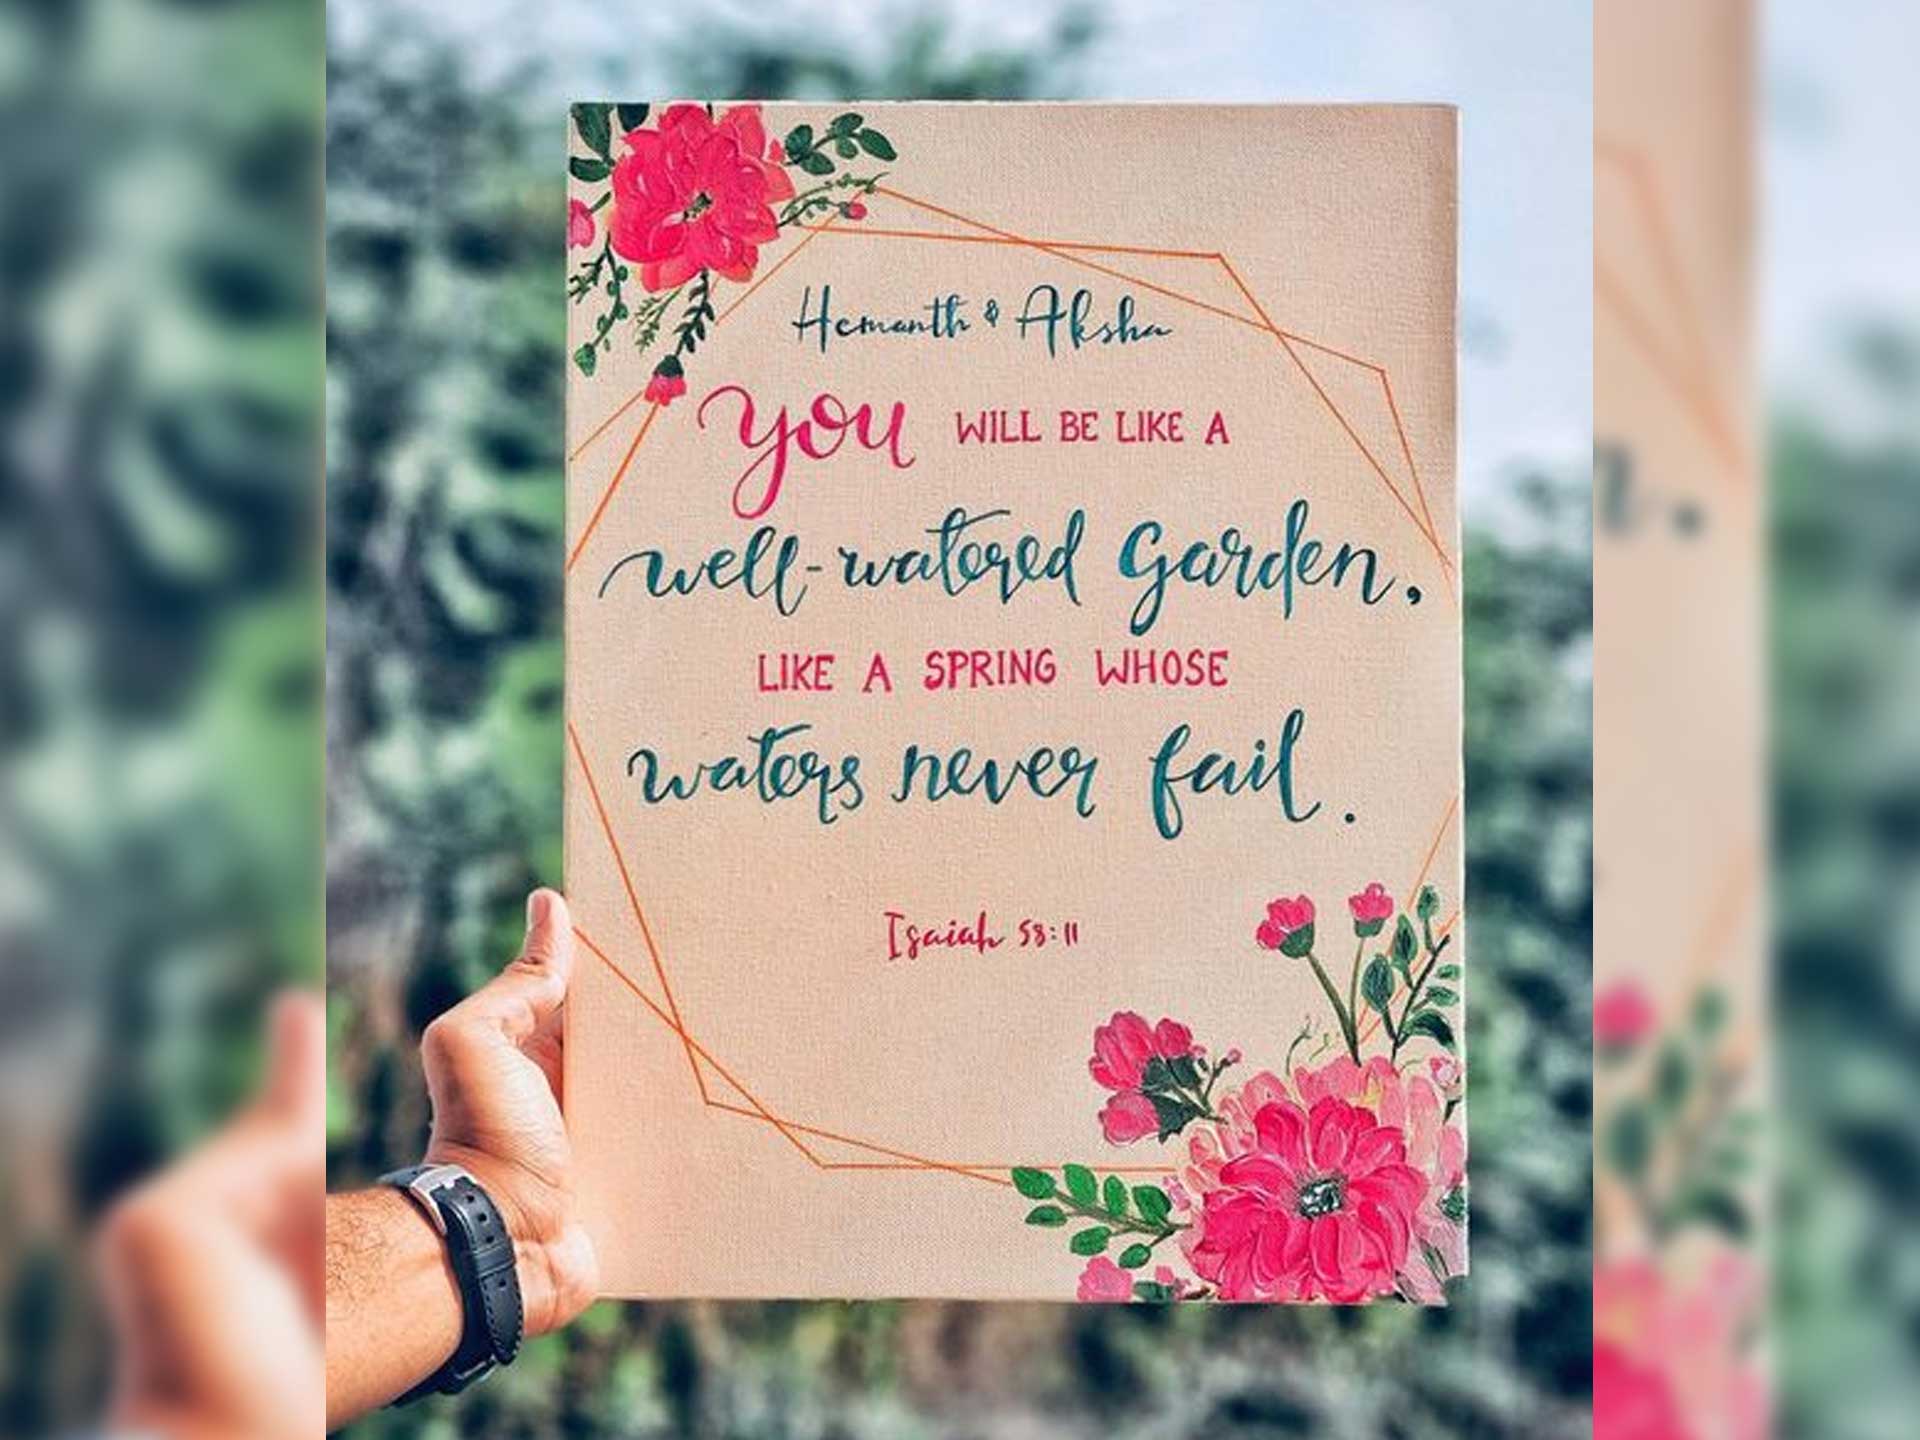 Hemanth & Aksha
you WILL BE LIKE A
well-watered garden,
LIKE A SPRING WHOSE
waters never fail.
Isaiah 58:11